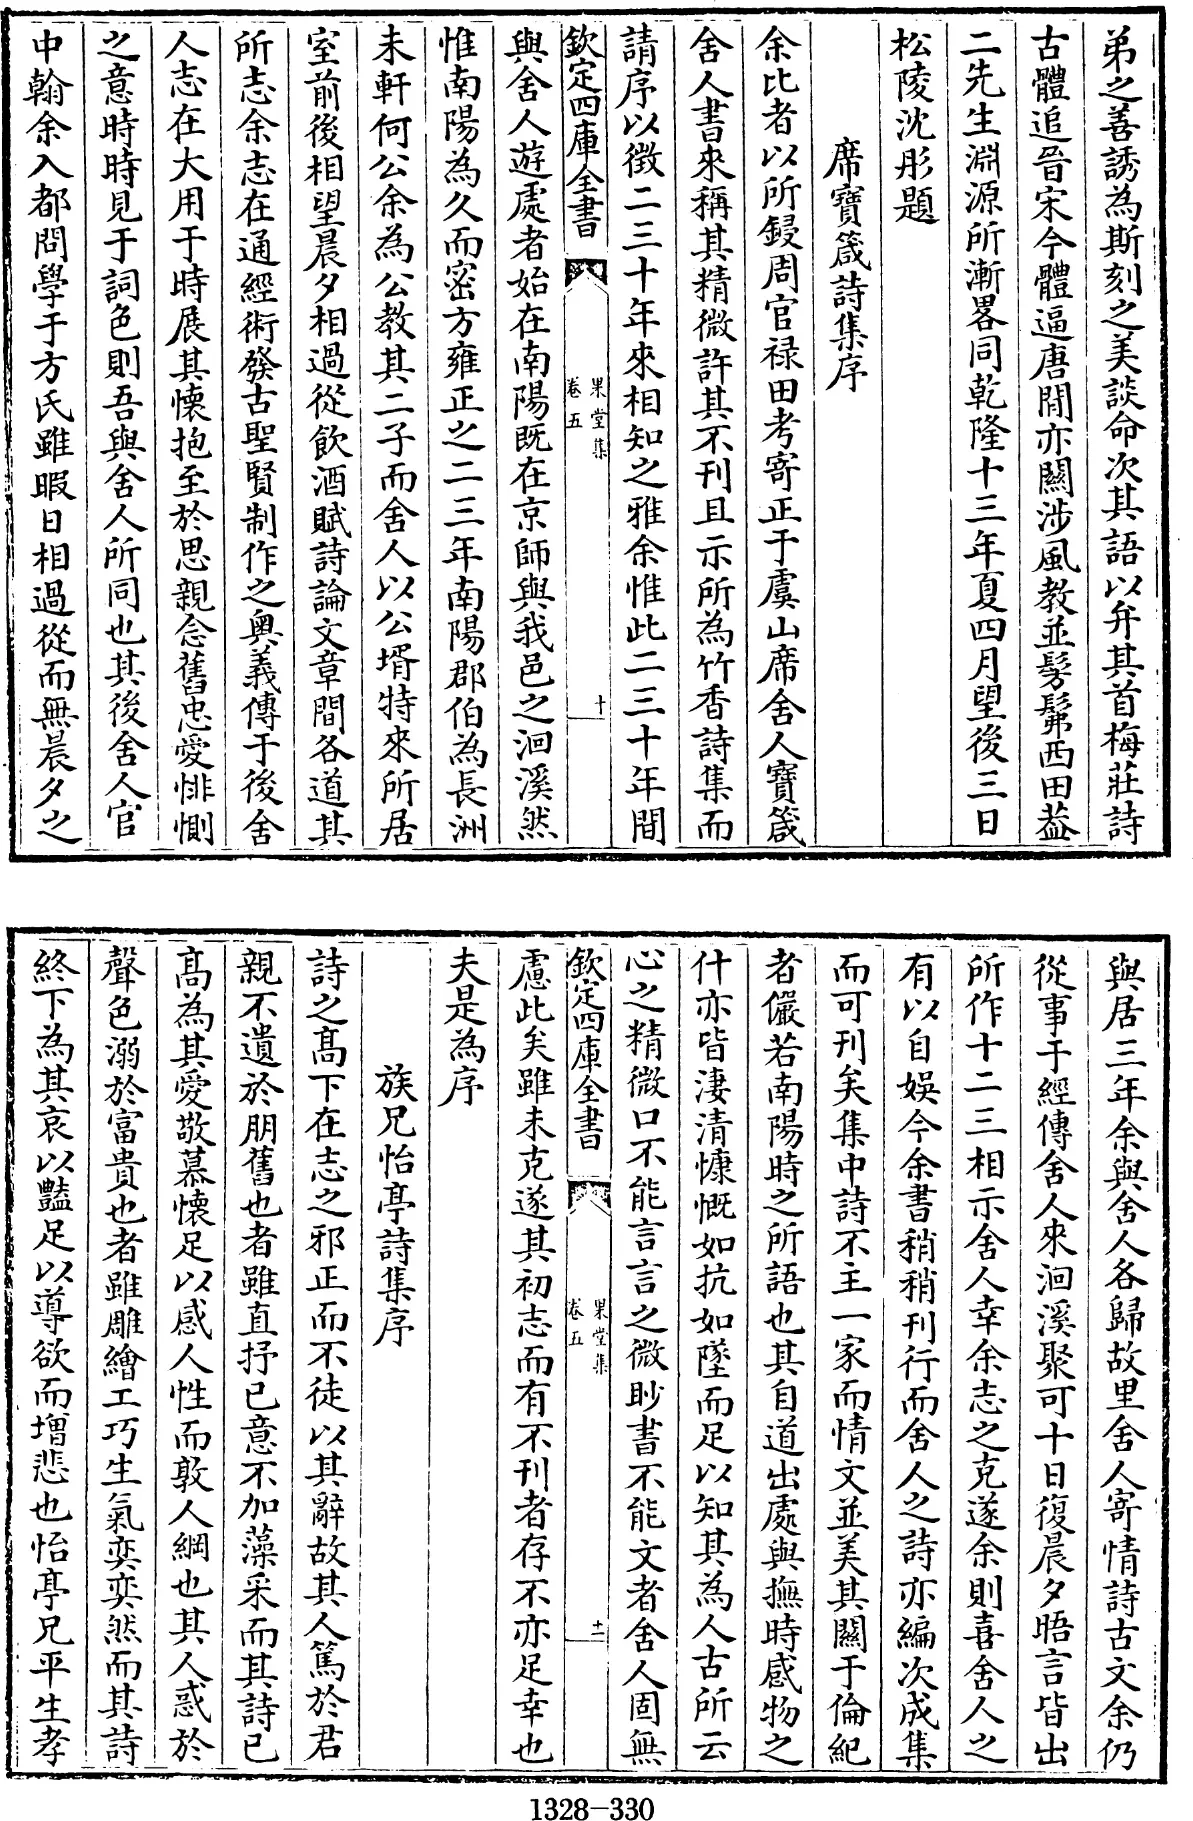 弟之善誘為斯刻之美談命次其語以弁其首梅莊詩
古體追晉宋今體逼唐間亦關涉風教並髣髴西田葢
二先生淵源所漸畧同乾隆十三年夏四月望後三日
松陵沈彤題
席寶箴詩集序
余比者以所鋟周官禄田考寄正于虞山席舍人寶箴
舍人書來稱其精微許其不刊且示所為竹香詩集而
請序以徵二三十年來相知之雅余惟此二三十年間
欽定四庫全書
果堂集
卷五
十
與舍人遊處者始在南陽既在京師與我邑之洄溪然
惟南陽為久而密方雍正之二三年南陽郡伯為長洲
未軒何公余為公教其二子而舍人以公壻特來所居
室前後相望晨夕相過從飲酒賦詩論文章間各道其
所志余志在通經術發古聖賢制作之奧義傳于後舍
人志在大用于時展其懐抱至於思親念舊忠愛悱惻
之意時時見于詞色則吾與舍人所同也其後舍人官
中翰余入都問學于方氏雖暇日相過從而無晨夕之
與居三年余與舍人各歸故里舍人寄情詩古文余仍
從事于經傳舍人來洄溪聚可十日復晨夕晤言皆出
所作十二三相示舍人幸余志之克遂余則喜舍人之
有以自娛今余書稍稍刊行而舍人之詩亦編次成集
而可刊矣集中詩不主一家而情文並美其關于倫紀
者儼若南陽時之所語也其自道出處與撫時感物之
什亦皆淒清慷慨如抗如墜而足以知其為人古所云
心之精微口不能言言之微眇書不能文者舍人固無
欽定四庫全書
果堂集
卷五
十一
慮此矣雖未克遂其初志而有不刊者存不亦足幸也
夫是為序
族兄怡亭詩集序
詩之髙下在志之邪正而不徒以其辭故其人篤於君
親不遺於朋舊也者雖直抒已意不加藻采而其詩已
髙為其愛敬慕懐足以感人性而敦人綱也其人惑於
聲色溺於富貴也者雖雕繪工巧生氣奕奕然而其詩
終下為其哀以豔足以導欲而增悲也怡亭兄平生孝
1328-330